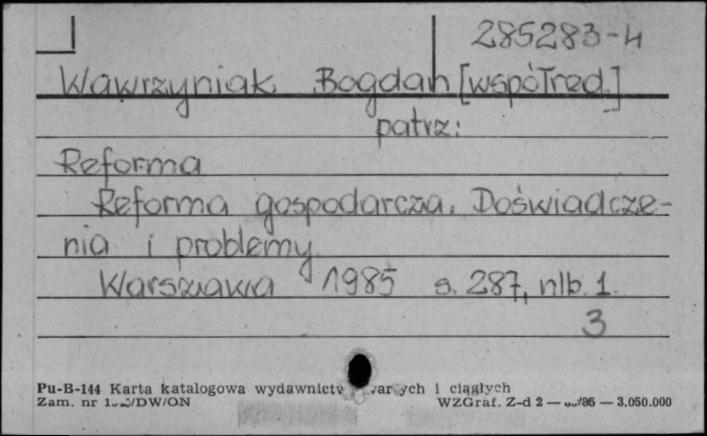 285283-H
Wawrzyniak Bogdan [współred.]
patrz:
Reforma
Reforma gospodarcza. Doświadcze-
nia i problemy
Warszawa 1985 s. 287, nlb. 1.
3
Pu-B-144 Karta katalogowa wydawnictw zwartych i ciągłych
Zam. nr /DW/ON WZGraf. Z-d 2 — /86 — 3.050.000